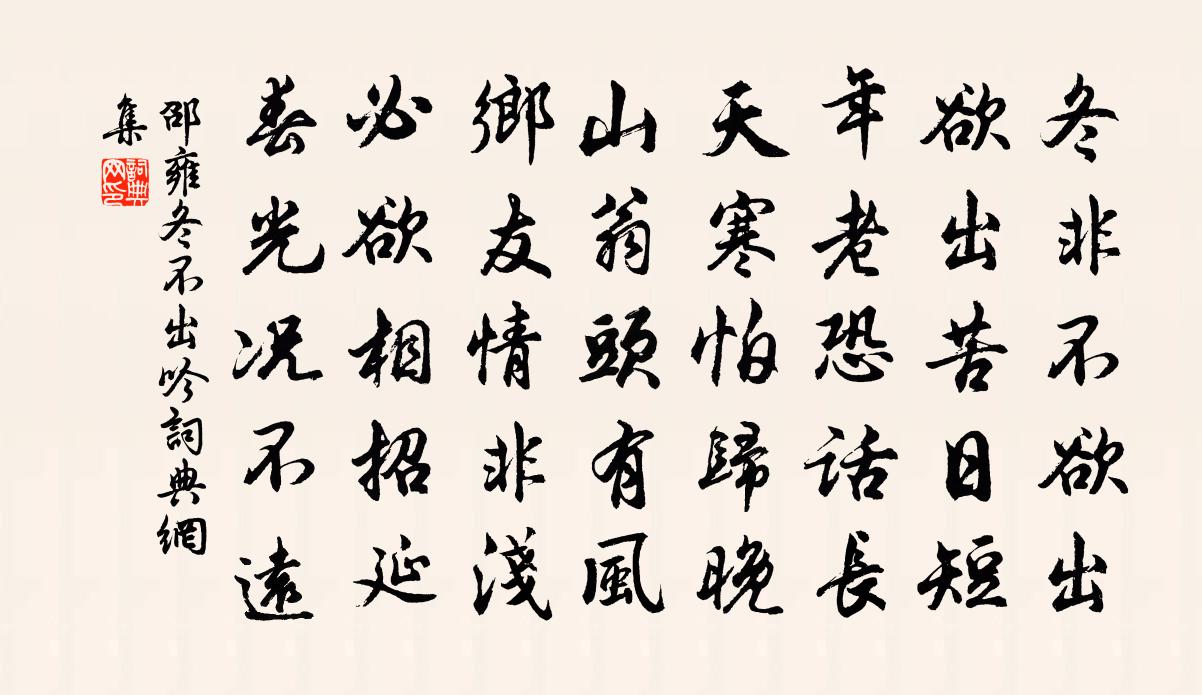 冬非不欲出
欲出苦日短
年老恐話長
天寒怕歸晚
山翁頭有風
鄉友情非淺
必欲相招延
春光况不遠
邵雍冬不出吟詞典網
集
詞典網印